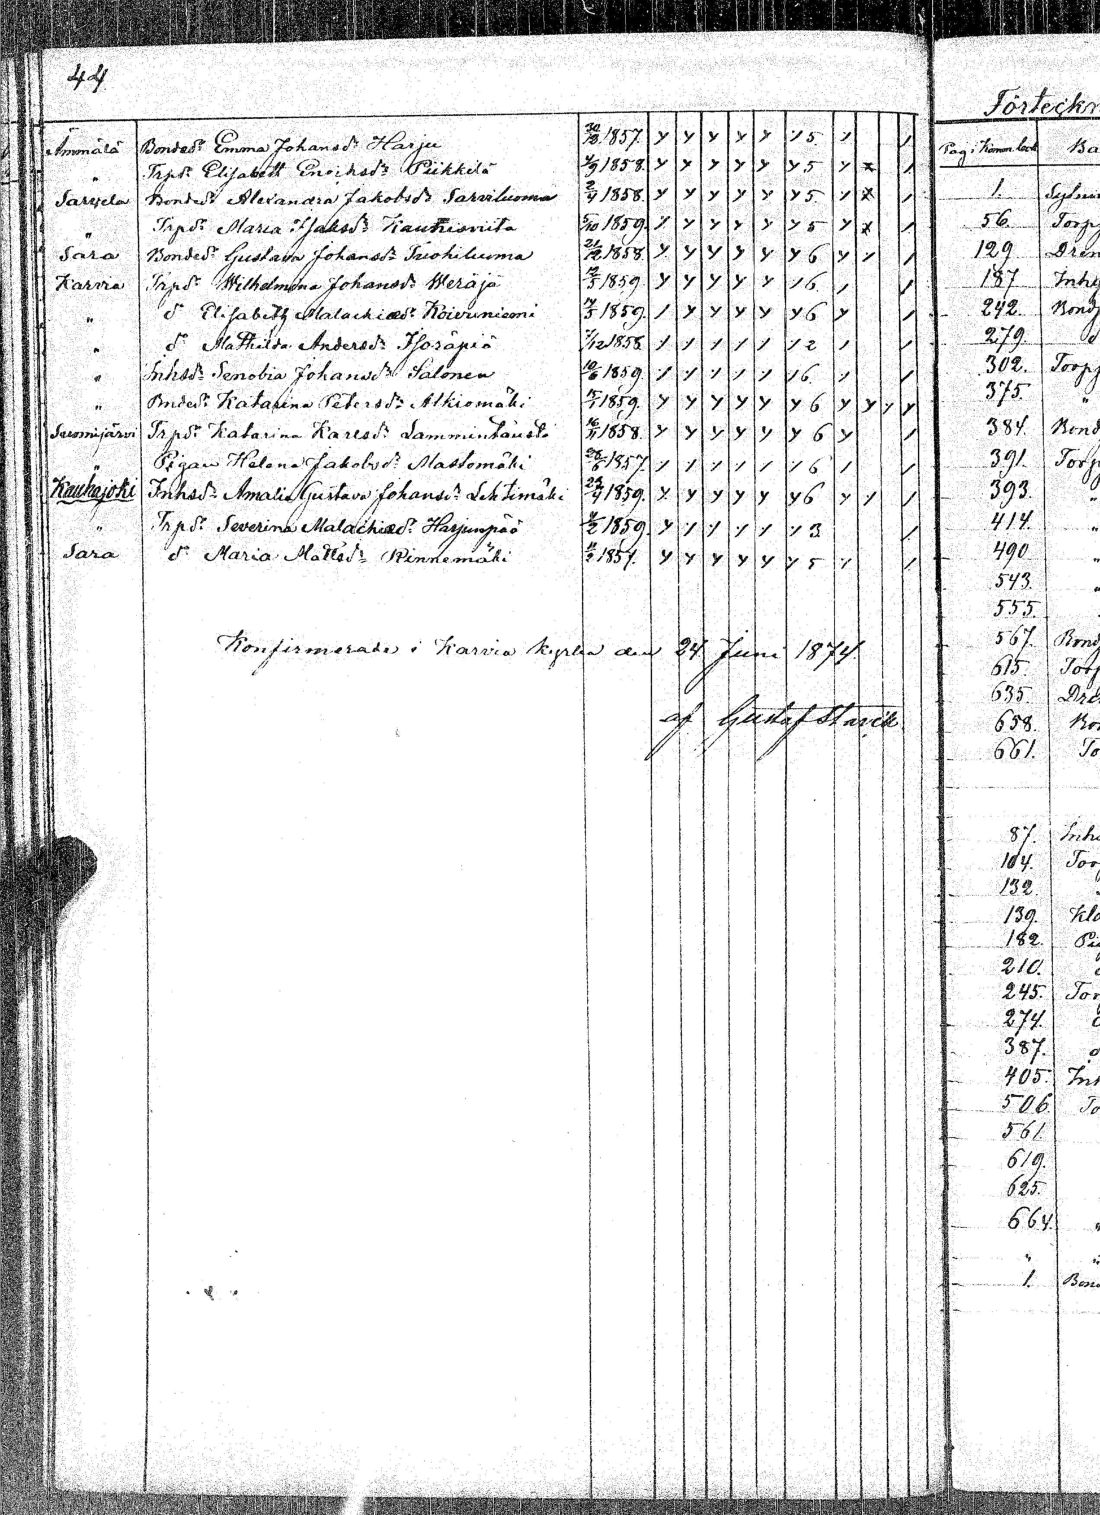 44
Ämmälä Bondedr Emma Johansdr Harju 1857. y y y y y 15 1 1
" Trpdr Elisabett Enochsdr Piikkilä 1858. y y y y y y5 y x 1
Sarvela Bondedr Alexandra Jakobsdr Sarviluoma 2/4 1858. y y y y y y5 1 x 1
" Trpdr Maria Isaksdr Kauhisviita 5/10 1859. 1 y y y y y5 y x 1
Sara Bondedr Gustava Johansdr Tuohiluoma 21/12 1858. y y y y y y6 y 1 1
Karvia Trpdr Wilhelmina Johansdr Weräjä 12/5 1859. y y y y y 16. 1 1
" dr Elisabeth Malachiædr Koivuniemi 1859. 1 y y y y y6 y 1
" dr Mathilda Andersdr Isoräpiä 7/12 1858. 1 1 1 1 1 12 1 1
" Inhsdr Senobia Johansdr Salonen 10/6 1859. 1 1 1 1 1 16. 1 1
" Bndedr Katarina Petersdr Alkiomäki 1859. y y y y y y6 y y y y
Suomijärvi Trpdr Katarina Karlsdr Lammintausta 1858. y y y y y y6 y 1
" Pigan Helena Jakobsdr Mastomäki 28/6 1857. 1 1 1 1 1 16 1 1
Kauhajoki Inhsdr Amalia Gustava Johansdr Lehtimäki 23/4 1859. y y y y y y6 y y 1
" Trpdr Severina Malachiædr Harjunpää 1859. y 1 1 1 1 13. 1
Sara dr Maria Mattsdr Rinnemäki 1857. y y y y y y5 1 1
Konfirmerade i Karvia kyrka den 24 Juni 1874.
af Gustaf Stavik
Förteckn
Pag. i Komm.bok Ba
1.
56. Torp
129 Dren
187 Inh
242. Bond
279. d
302. Torp
375. "
384. Bond
391. Torp
393. "
414. "
490 "
543. "
555.
567. Bond
615. Torp
635. Dre
658. Bon
661. To
87. Inh
104. Tor
132.
139. Klo
182. Pi
210. d
245. Tor
274. d
387. d
405. Inh
506. To
561.
619.
625.
664. "
" "
1. Bon